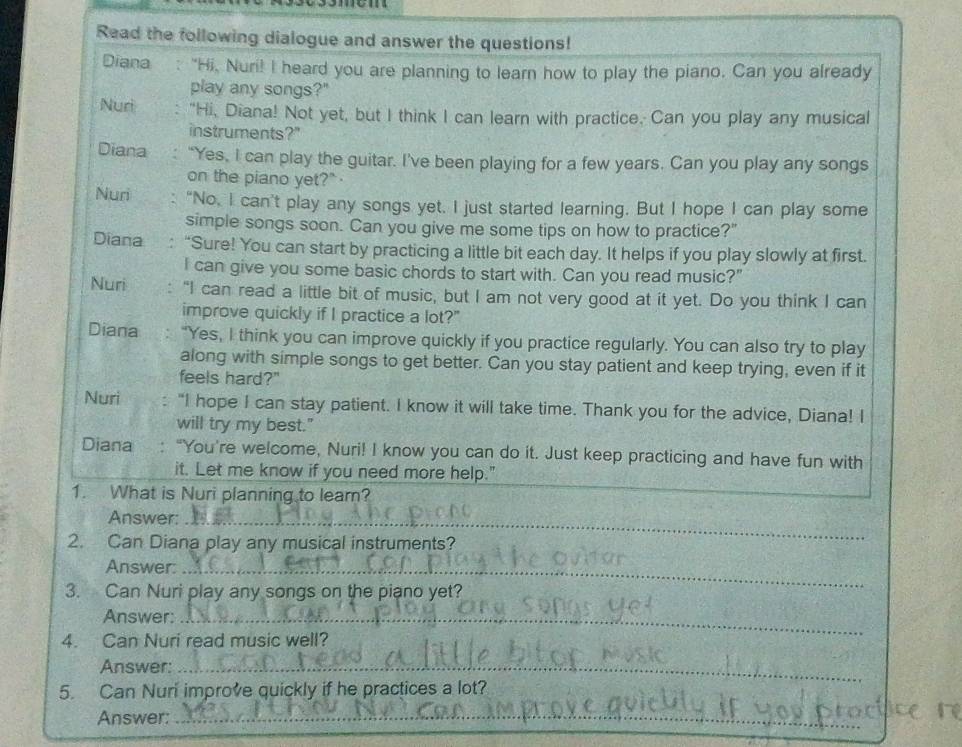 Read the following dialogue and answer the questions!
Diana : "Hi, Nuri! I heard you are planning to learn how to play the piano. Can you already
play any songs?"
Nuri : "Hi, Diana! Not yet, but I think I can learn with practice. Can you play any musical
instruments?"
Diana : "Yes, I can play the guitar. I've been playing for a few years. Can you play any songs
on the piano yet?"
Nuri : "No, I can't play any songs yet. I just started learning. But I hope I can play some
simple songs soon. Can you give me some tips on how to practice?"
Diana : "Sure! You can start by practicing a little bit each day. It helps if you play slowly at first.
I can give you some basic chords to start with. Can you read music?"
Nuri : "I can read a little bit of music, but I am not very good at it yet. Do you think I can
improve quickly if I practice a lot?"
Diana : "Yes, I think you can improve quickly if you practice regularly. You can also try to play
along with simple songs to get better. Can you stay patient and keep trying, even if it
feels hard?"
Nuri : "I hope I can stay patient. I know it will take time. Thank you for the advice, Diana! I
will try my best."
Diana : "You're welcome, Nuri! I know you can do it. Just keep practicing and have fun with
it. Let me know if you need more help."
1. What is Nuri planning to learn?
Answer: Play the piano
2. Can Diana play any musical instruments?
Answer: Yes, I can play the guitar
3. Can Nuri play any songs on the piano yet?
Answer: No, I can't play any songs yet
4. Can Nuri read music well?
Answer: I can read a little bit of music
5. Can Nuri improve quickly if he practices a lot?
Answer: Yes, I think can improve quickly if you practice re